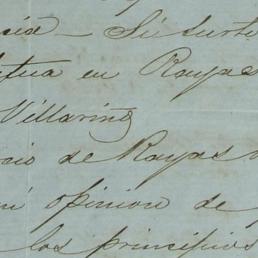 — Si surte
en Rayas
Villarino
de Rayas
opinion de
los principios